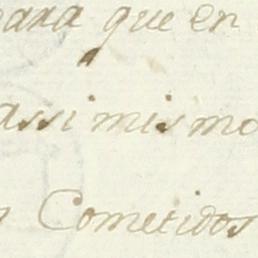 para que en
assi mismo
Cometidos